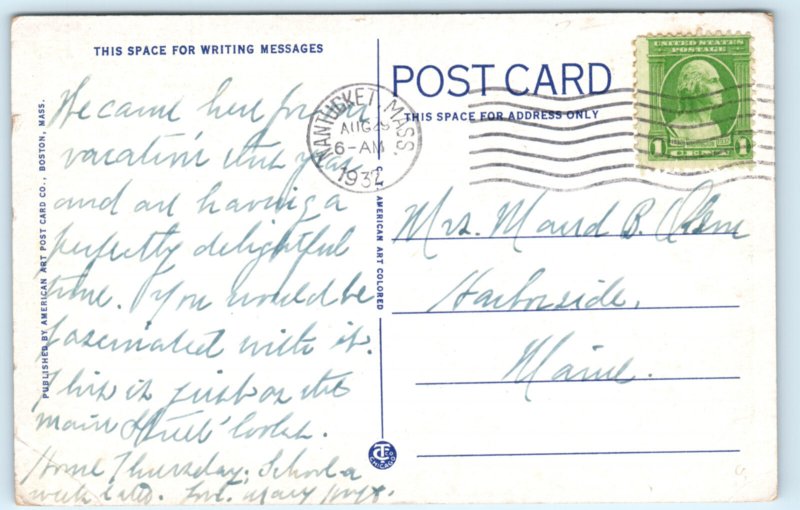 THIS SPACE FOR WRITING MESSAGES
We came here for our
vacation this year
and are having a
perfectly delightful
time. You would be
fascinated with it.
This is just as the
main street looks.
Home Thursday. School a
week later. Love, Mary
PUBLISHED BY AMERICAN ART POST CARD CO., BOSTON, MASS.
AMERICAN ART COLORED
POST CARD
THIS SPACE FOR ADDRESS ONLY
NANTUCKET, MASS.
AUG 29
6-AM
1932
UNITED STATES POSTAGE
1 CENT 1
Mrs. Maud B.
Harborside,
Maine.
CTCo
CHICAGO